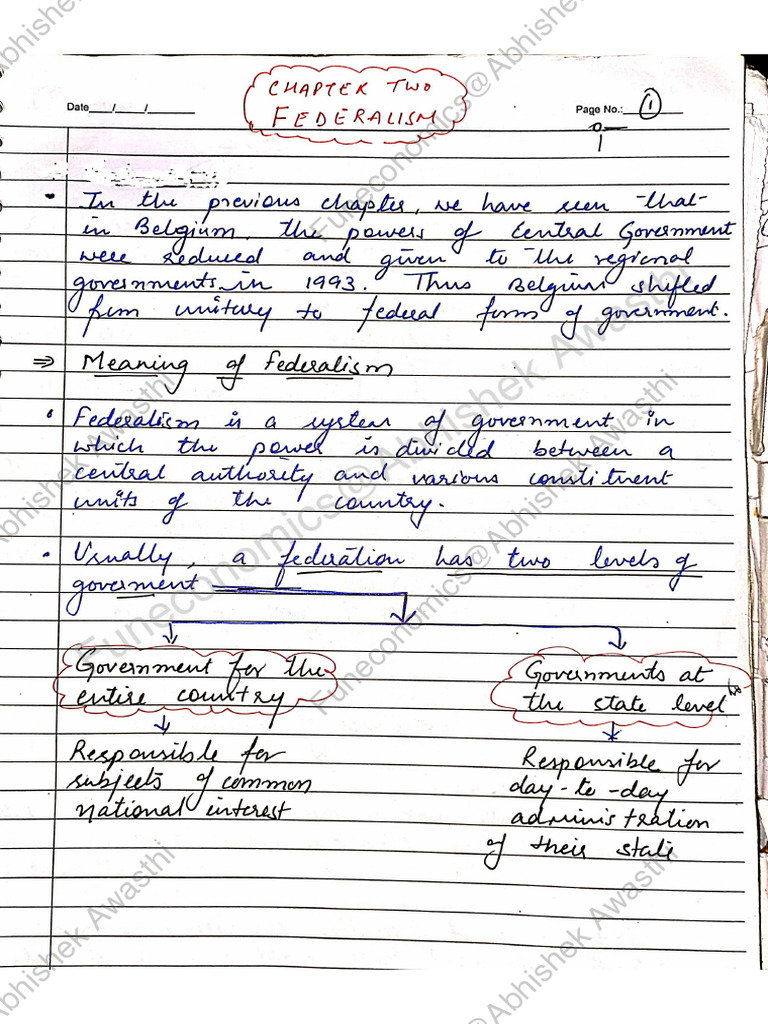 CHAPTER TWO
FEDERALISM
Date___/___/______
Page No.: 1
• In the previous chapter, we have seen that
in Belgium, the powers of Central Government
were reduced and given to the regional
governments in 1993. Thus Belgium shifted
from unitary to federal form of government.
⇒ Meaning of Federalism
• Federalism is a system of government in
which the power is divided between a
central authority and various constituent
units of the country.
• Usually, a federation has two levels of
goverment
Government for the
entire country
Governments at
the state level
Responsible for
subjects of common
national interest
Responsible for
day-to-day
administration
of their state
Funeconomics@Abhishek Awasthi